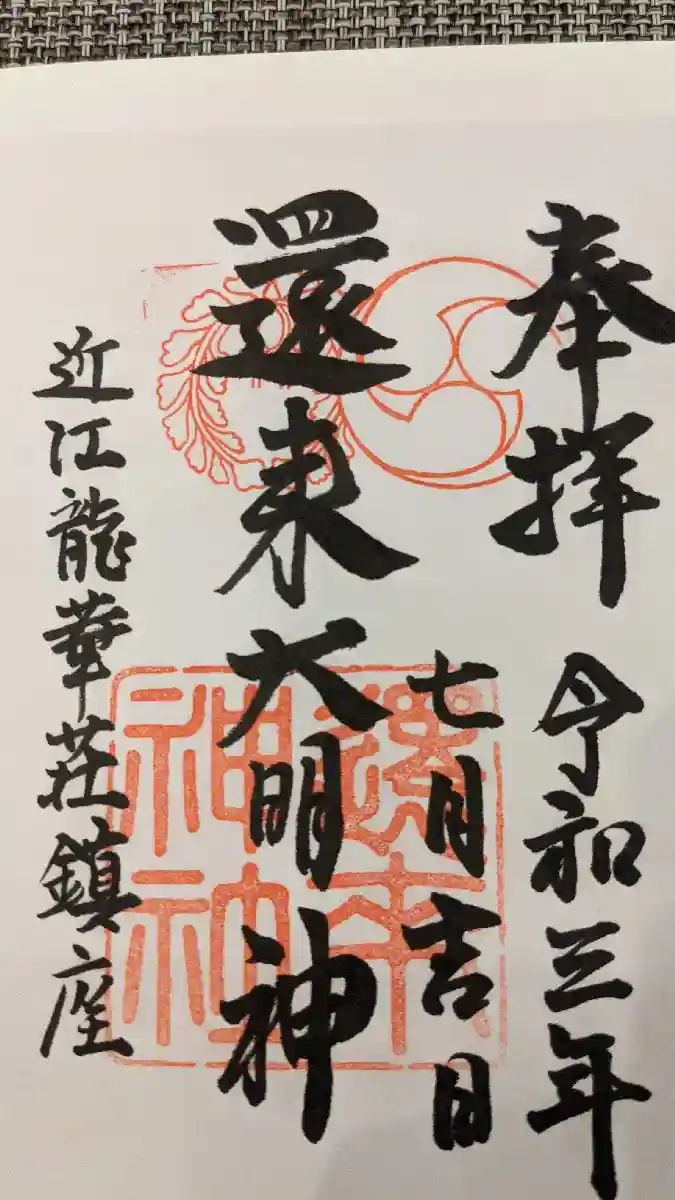 奉拝
令和三年
七月吉日
還来大明神
還来神社
近江龍華荘鎮座